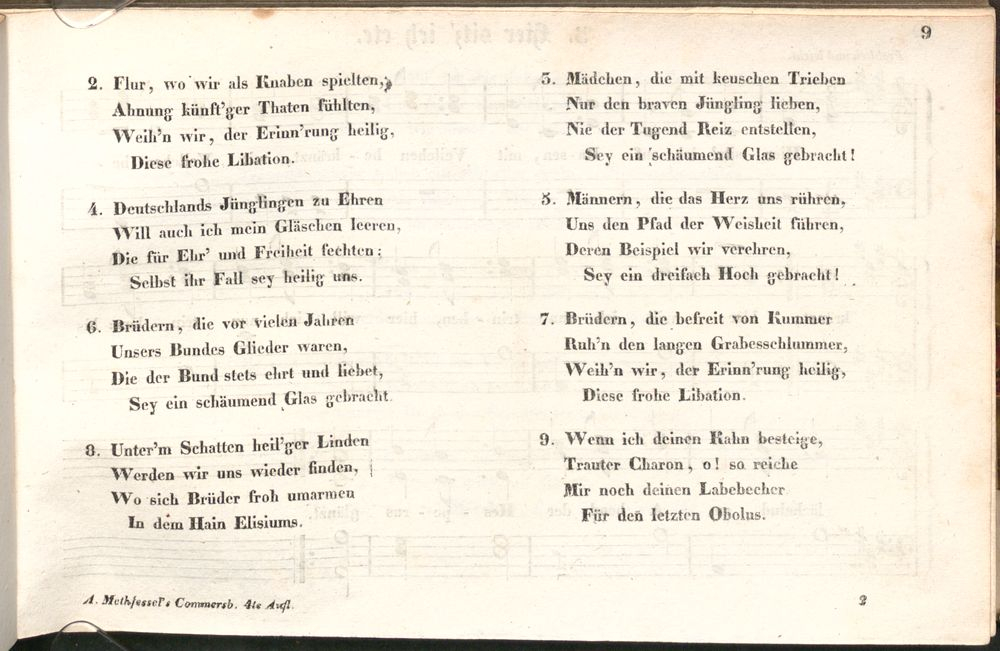 9
2. Flur, wo wir als Knaben spielten,
Ahnung künft'ger Thaten fühlten,
Weih'n wir, der Erinn'rung heilig,
Diese frohe Libation.
3. Mädchen, die mit keuschen Trieben
Nur den braven Jüngling lieben,
Nie der Tugend Reiz entstellen,
Sey ein schäumend Glas gebracht!
4. Deutschlands Jünglingen zu Ehren
Will auch ich mein Gläschen leeren,
Die für Ehr' und Freiheit fechten;
Selbst ihr Fall sey heilig uns.
5. Männern, die das Herz uns rühren,
Uns den Pfad der Weisheit führen,
Deren Beispiel wir verehren,
Sey ein dreifach Hoch gebracht!
6. Brüdern, die vor vielen Jahren
Unsers Bundes Glieder waren,
Die der Bund stets ehrt und liebet,
Sey ein schäumend Glas gebracht.
7. Brüdern, die befreit von Kummer
Ruh'n den langen Grabesschlummer,
Weih'n wir, der Erinn'rung heilig,
Diese frohe Libation.
8. Unter'm Schatten heil'ger Linden
Werden wir uns wieder finden,
Wo sich Brüder froh umarmen
In dem Hain Elisiums.
9. Wenn ich deinen Kahn besteige,
Trauter Charon, o! so reiche
Mir noch deinen Labebecher
Für den letzten Obolus.
A. Methfessel's Commersb. 4te Aufl.
2